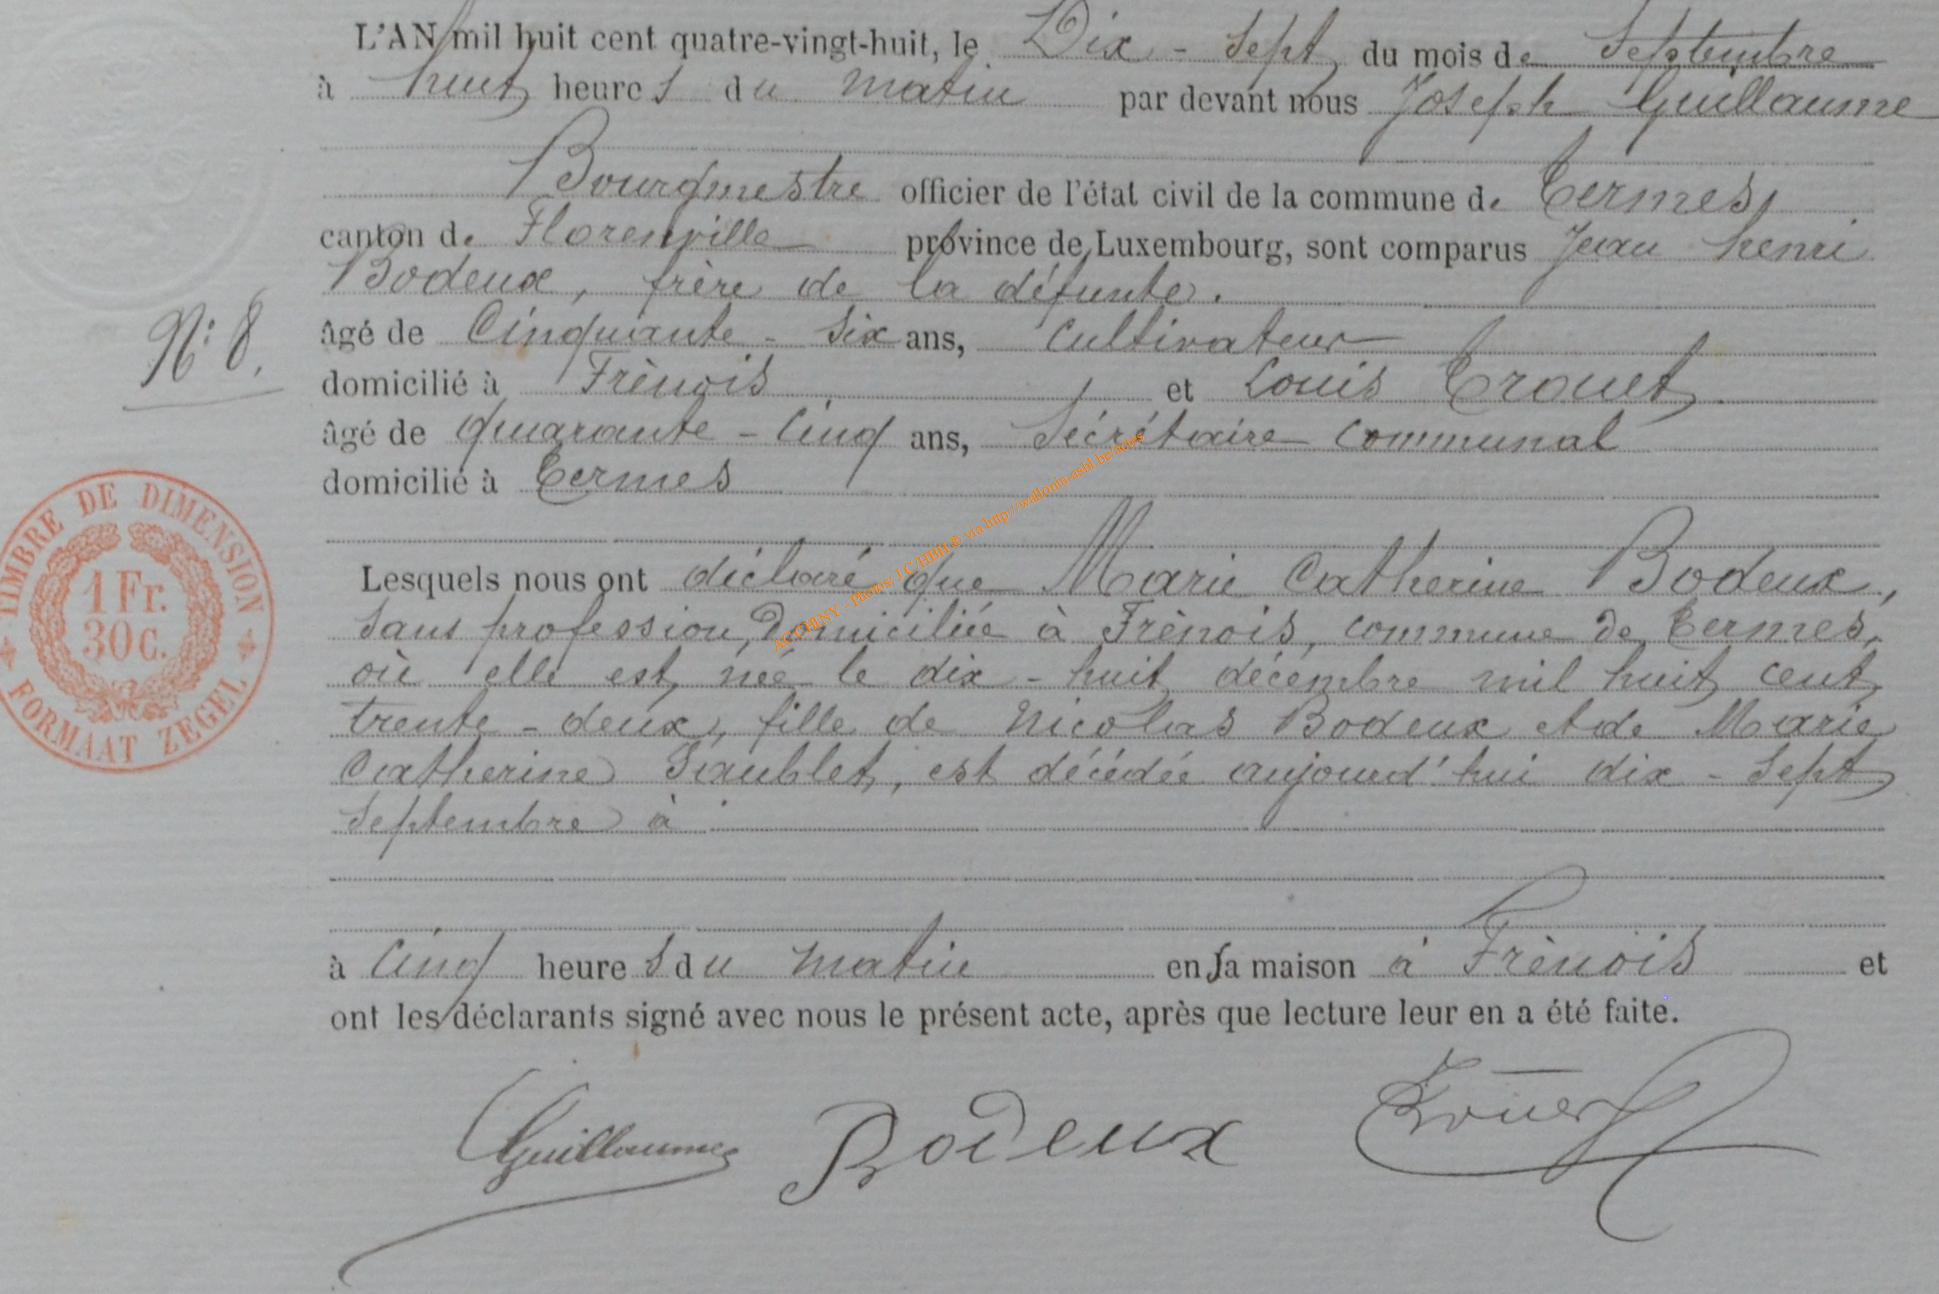 L'AN mil huit cent quatre-vingt-huit, le Dix - Sept du mois de Septembre
à huit heures du matin par devant nous Joseph Guillaume
Bourgmestre officier de l'état civil de la commune de Termes,
canton de Florenville province de Luxembourg, sont comparus Jean henri
Bodeux, frère de la défunte.
N: 8.
âgé de Cinquante - Six ans, Cultivateur
domicilié à Frènois et Louis Trouet
âgé de quarante - Cinq ans, Sécrétaire Communal
domicilié à Termes
TIMBRE DE DIMENSION
1 Fr.
30 C.
FORMAAT ZEGEL
Lesquels nous ont déclaré que Marie Catherine Bodeux,
Sans profession, Domiciliée à Frènois, commune de Termes,
où elle est née le dix - huit décembre mil huit cent
trente - deux, fille de Nicolas Bodeux et de Marie
Catherine Jaublet, est décédée aujourd'hui dix - Sept
Septembre à
à Cinq heures du matin en sa maison à Frènois et
ont les déclarants signé avec nous le présent acte, après que lecture leur en a été faite.
Guillaume Bodeux Trouet